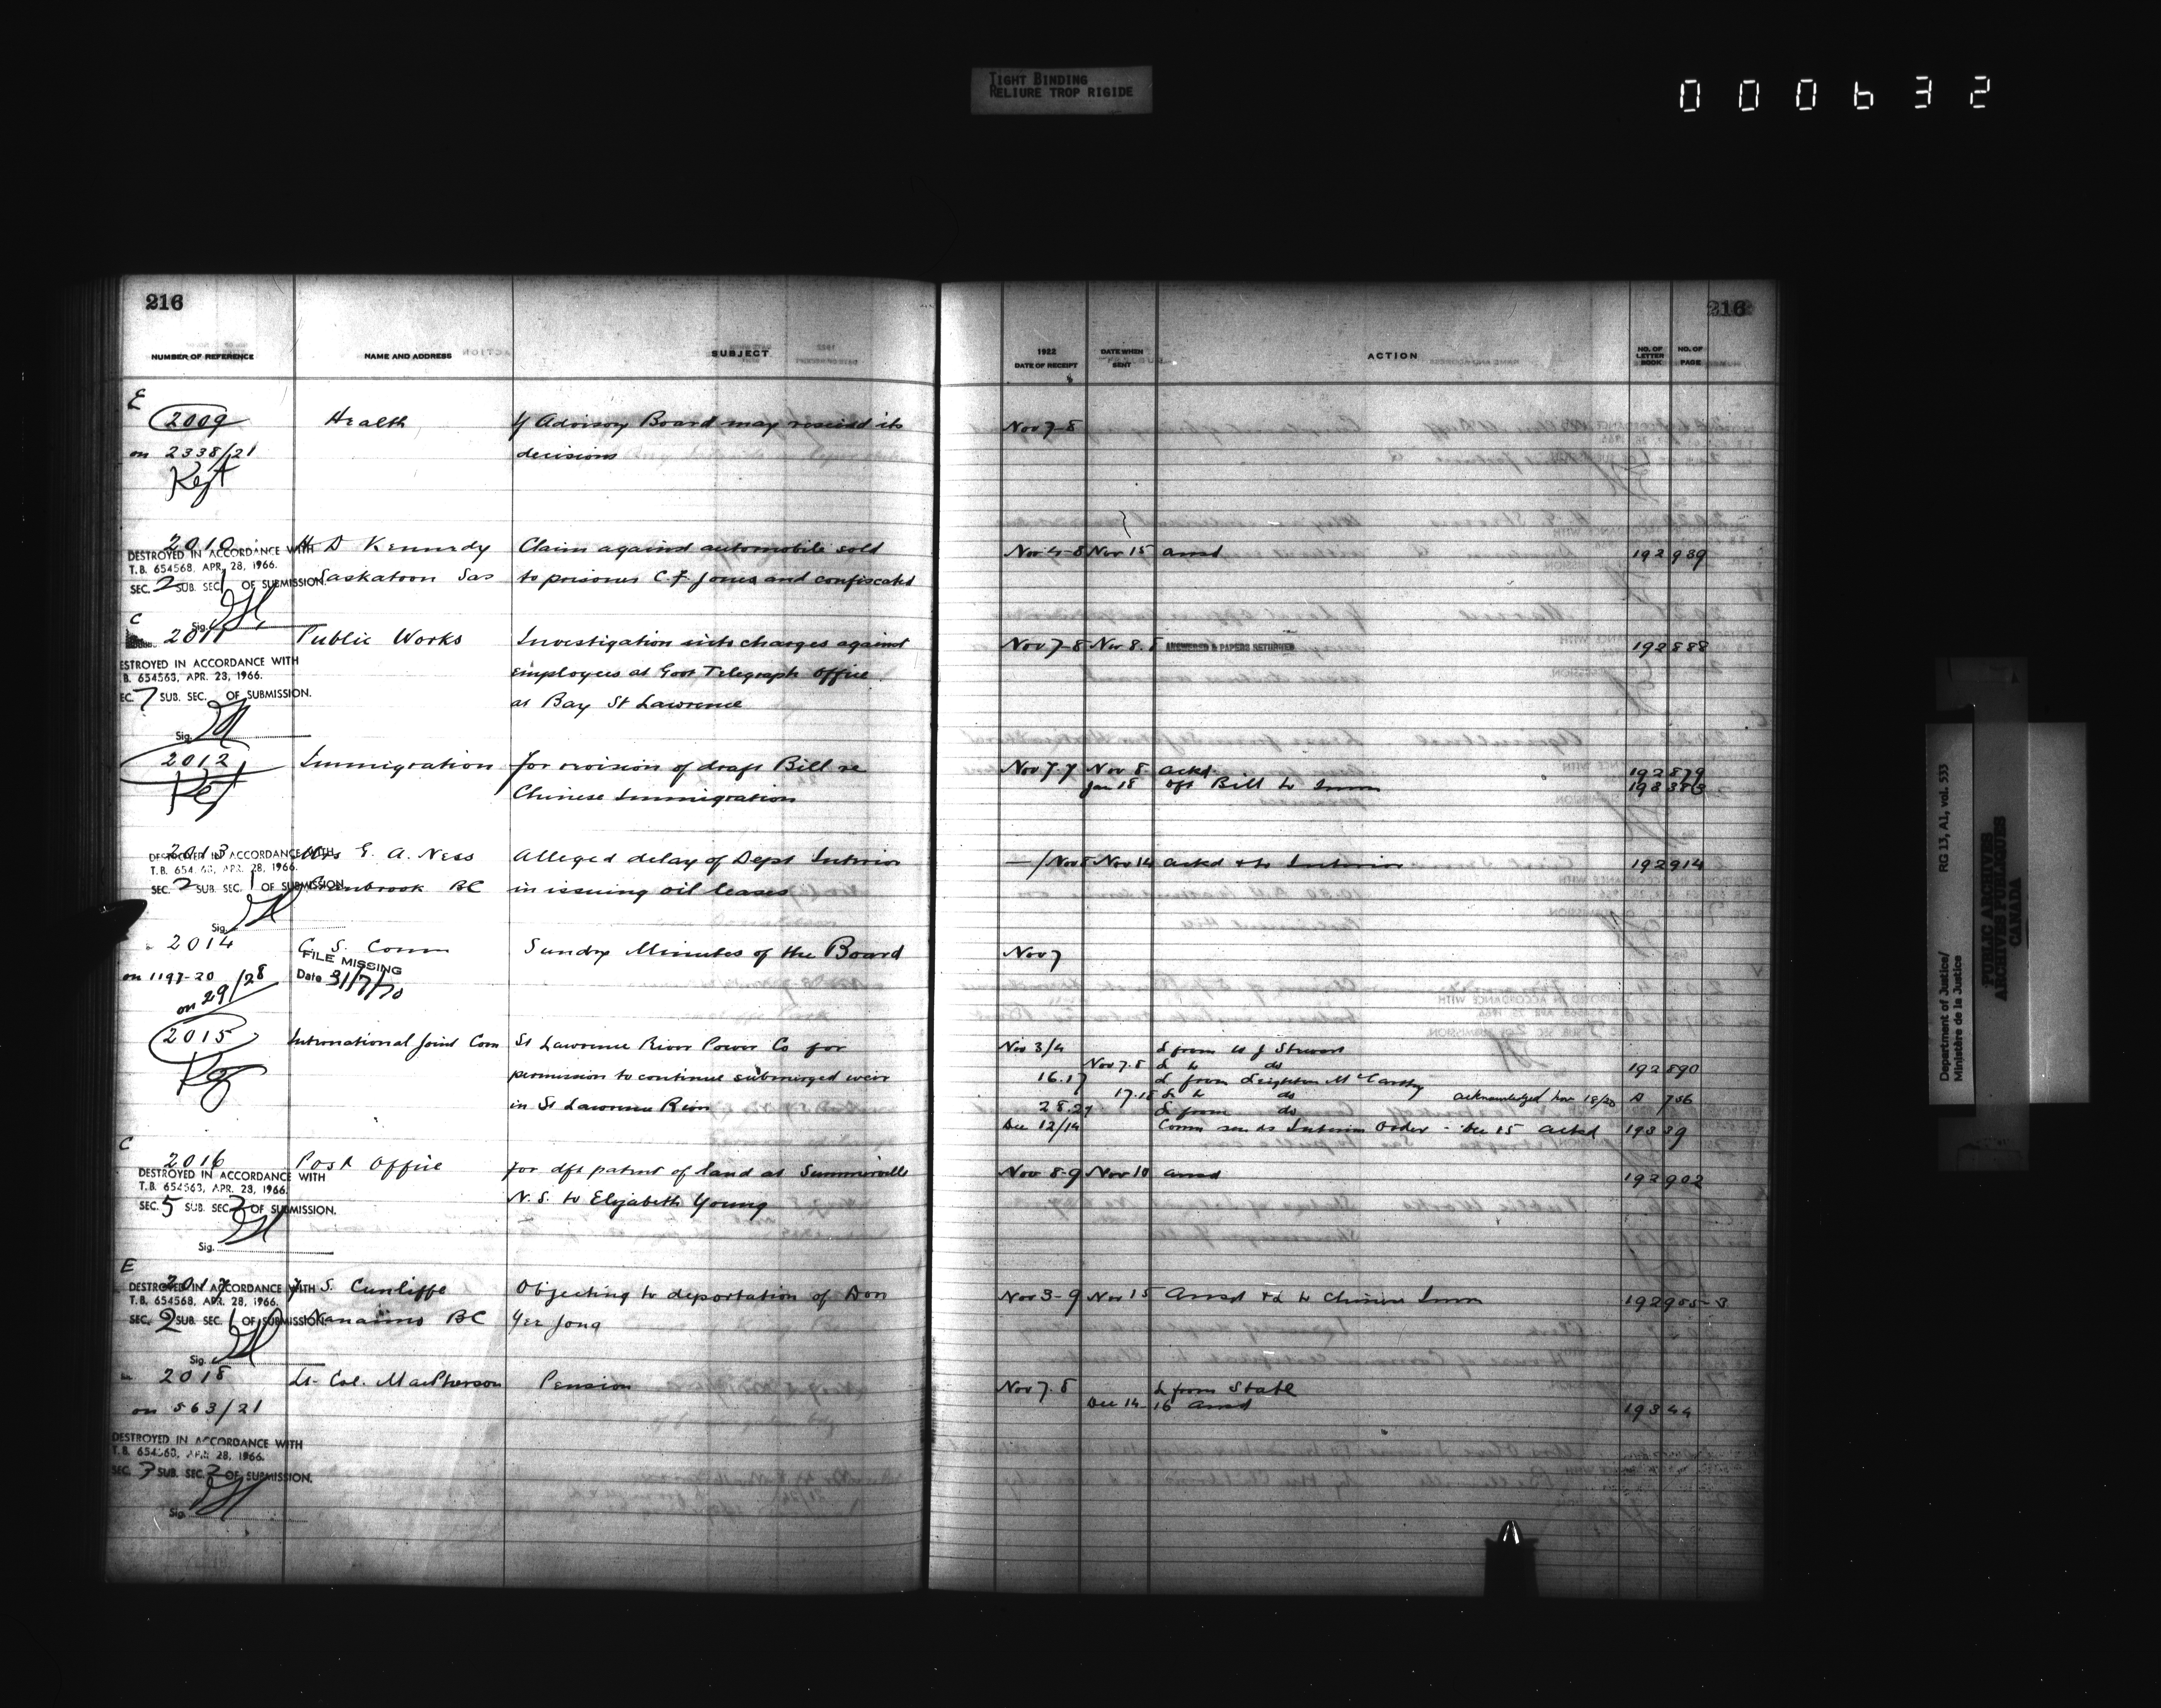 TIGHT BINDING
RELIURE TROP RIGIDE
000632
216
216
NUMBER OF REFERENCE NAME AND ADDRESS SUBJECT 1922 DATE OF RECEIPT DATE WHEN SENT ACTION NO. OF LETTER BOOK NO. OF PAGE
E
2009 Health If Advisory Board may rescind its Nov 7-8
on 2338/21 decisions
2010 D Kennedy Claim against automobile sold Nov 4-8 Nov 15 ansd 192 989
DESTROYED IN ACCORDANCE WITH
T.B. 654568, APR. 28, 1966.
Saskatoon Sas to prisoner C.F. Jones and confiscated
SEC. 2 SUB. SEC. 1 OF SUBMISSION.
Sig.
C
2011 Public Works Investigation into charges against Nov 7-8 Nov 8. ANSWERED & PAPERS RETURNED 192 888
ESTROYED IN ACCORDANCE WITH
employees at Govt Telegraph Office
B. 654568, APR. 28, 1966.
EC. 7 SUB. SEC. OF SUBMISSION.
at Bay St Lawrence
Sig.
2012 Immigration for revision of draft Bill re Nov 7.7 Nov 8. ackd. 192 879
Chinese Immigration Jan 18 dft Bill to Imm
2013 E. A. Ness Alleged delay of Dept Interior Nov 14 ackd & to Interior 192 914
DESTROYED IN ACCORDANCE WITH
T.B. 654568, APR. 28, 1966.
SEC. 2 SUB. SEC. 1 OF SUBMISSION.
BC in issuing oil leases
Sig.
2014 C. S. Comm Sundry Minutes of the Board Nov 7
FILE MISSING
on 1197-20 Date 31/7/70
on 29/28
2015 International Joint Com St Lawrence River Power Co for Nov 3/4 L from Stewart
permission to continue submerged weir Nov 7.8 L to do 192 890
16.17 L from Leighton McCarthy
in St Lawrence River 17.18 L to do acknowledged Nov 18/20 756
28.29 L from do
Dec 12/14 Comm sends Interim Order - Dec 15 ackd 193 39
C
2016 Post Office for dft patent of land at Summerville Nov 8-9 Nov 10 ansd 192 902
DESTROYED IN ACCORDANCE WITH
T.B. 654568, APR. 28, 1966.
N.S. to Elizabeth Young
SEC. 5 SUB. SEC. 3 OF SUBMISSION.
Sig.
E
2017 S. Cunliffe Objecting to deportation of Don Nov 3-9 Nov 15 Ansd & L to Chinese Imm
DESTROYED IN ACCORDANCE WITH
T.B. 654568, APR. 28, 1966.
Nanaimo BC Yee Jong
SEC. 2 SUB. SEC. 1 OF SUBMISSION.
Sig.
2018 Lt- Col. MacPherson Pension Nov 7.8 L from State
on 563/21 Dec 14 16 ansd 193 44
DESTROYED IN ACCORDANCE WITH
T.B. 654568, APR. 28, 1966.
SEC. 7 SUB. SEC. 2 OF SUBMISSION.
Sig.
Department of Justice/
Ministère de la Justice
RG 13, A1, vol. 533
PUBLIC ARCHIVES
ARCHIVES PUBLIQUES
CANADA